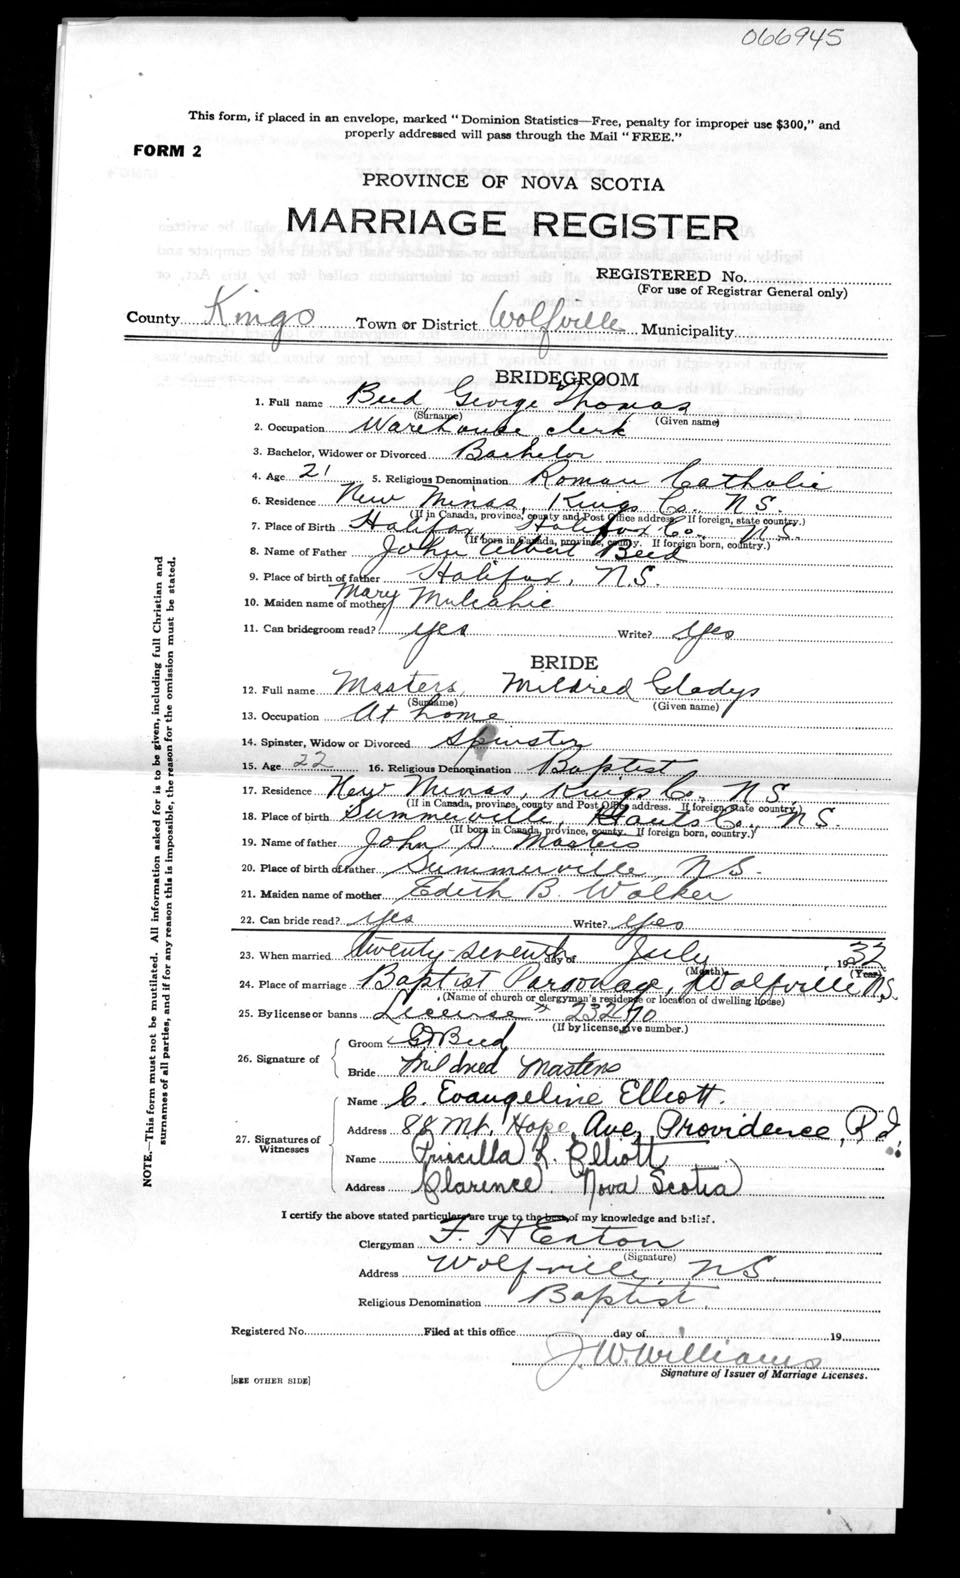 066945
This form, if placed in an envelope, marked "Dominion Statistics—Free, penalty for improper use $300," and
properly addressed will pass through the Mail "FREE."
FORM 2
PROVINCE OF NOVA SCOTIA
MARRIAGE REGISTER
REGISTERED No.
(For use of Registrar General only)
County Kings Town or District Wolfville Municipality
BRIDEGROOM
1. Full name Beed George Thomas
(Surname) (Given name)
2. Occupation Warehouse clerk
3. Bachelor, Widower or Divorced Bachelor
4. Age 21 5. Religious Denomination Roman Catholic
6. Residence New Minas, Kings Co. N.S.
(If in Canada, province, county and Post Office address. If foreign, state country.)
7. Place of Birth Halifax Halifax Co. N.S.
(If born in Canada, province, county. If foreign born, country.)
8. Name of Father John Albert Beed
9. Place of birth of father Halifax, N.S.
10. Maiden name of mother Mary Mulcahie
11. Can bridegroom read? yes Write? yes
BRIDE
12. Full name Masters, Mildred Gladys
(Surname) (Given name)
13. Occupation At home
14. Spinster, Widow or Divorced Spinster
15. Age 22 16. Religious Denomination Baptist
17. Residence New Minas, Kings Co., N.S.
(If in Canada, province, county and Post Office address. If foreign, state country.)
18. Place of birth Summerville, Hants Co., N.S.
(If born in Canada, province, county. If foreign born, country.)
19. Name of father John S. Masters
20. Place of birth of father Summerville, N.S.
21. Maiden name of mother Edith B. Walker
22. Can bride read? yes Write? yes
23. When married twenty-seventh day of July 1932
(Month) (Year)
24. Place of marriage Baptist Parsonage, Wolfville N.S.
(Name of church or clergyman's residence or location of dwelling house)
25. By license or banns License # 23270
(If by license, give number.)
26. Signature of
Groom G Beed
Bride Mildred Masters
27. Signatures of Witnesses
Name C. Evangeline Elliott.
Address 88 Mt. Hope Ave, Providence, R.I.
Name Priscilla R. Elliott
Address Clarence. Nova Scotia
I certify the above stated particulars are true to the best of my knowledge and belief.
Clergyman F. H Eaton
(Signature)
Address Wolfville, N.S.
Religious Denomination Baptist.
Registered No. Filed at this office day of 19
J. W. Williams
Signature of Issuer of Marriage Licenses.
[SEE OTHER SIDE]
NOTE.—This form must not be mutilated. All information asked for is to be given, including full Christian and
surnames of all parties, and if for any reason this is impossible, the reason for the omission must be stated.